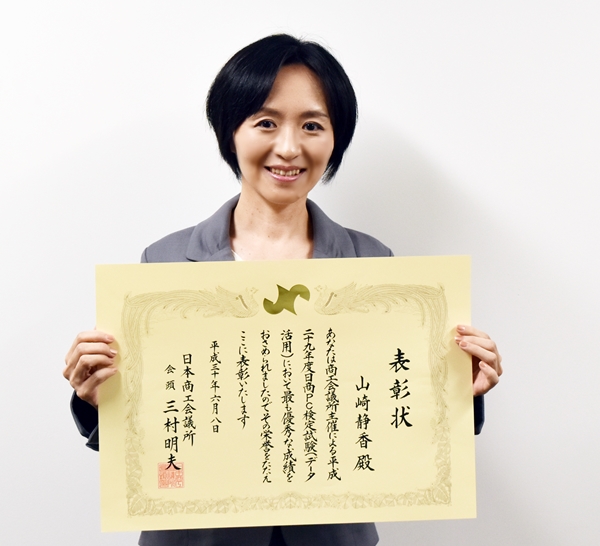 表彰状
山﨑静香殿
あなたは商工会議所主催による平成
二十九年度日商PC検定試験(データ
活用)において最も優秀な成績を
おさめられましたのでその栄誉をたたえ
ここに表彰いたします
平成三十年六月八日
日本商工会議所
会頭 三村明夫